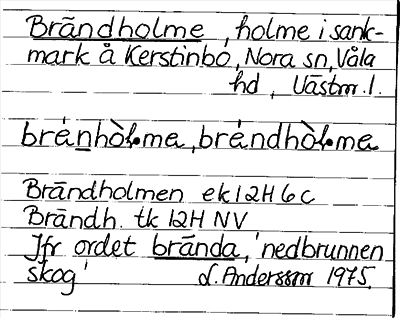 Brändholme, holme i sank-
mark å Kerstinbo, Nora sn, Våla
hd, Västm.l.
brén̲hòl̵me, bréndhòl̵me
Brändholmen ek 12H 6c
Brändh. tk 12H NV
Jfr ordet brända, 'nedbrunnen
skog' L. Andersson 1975